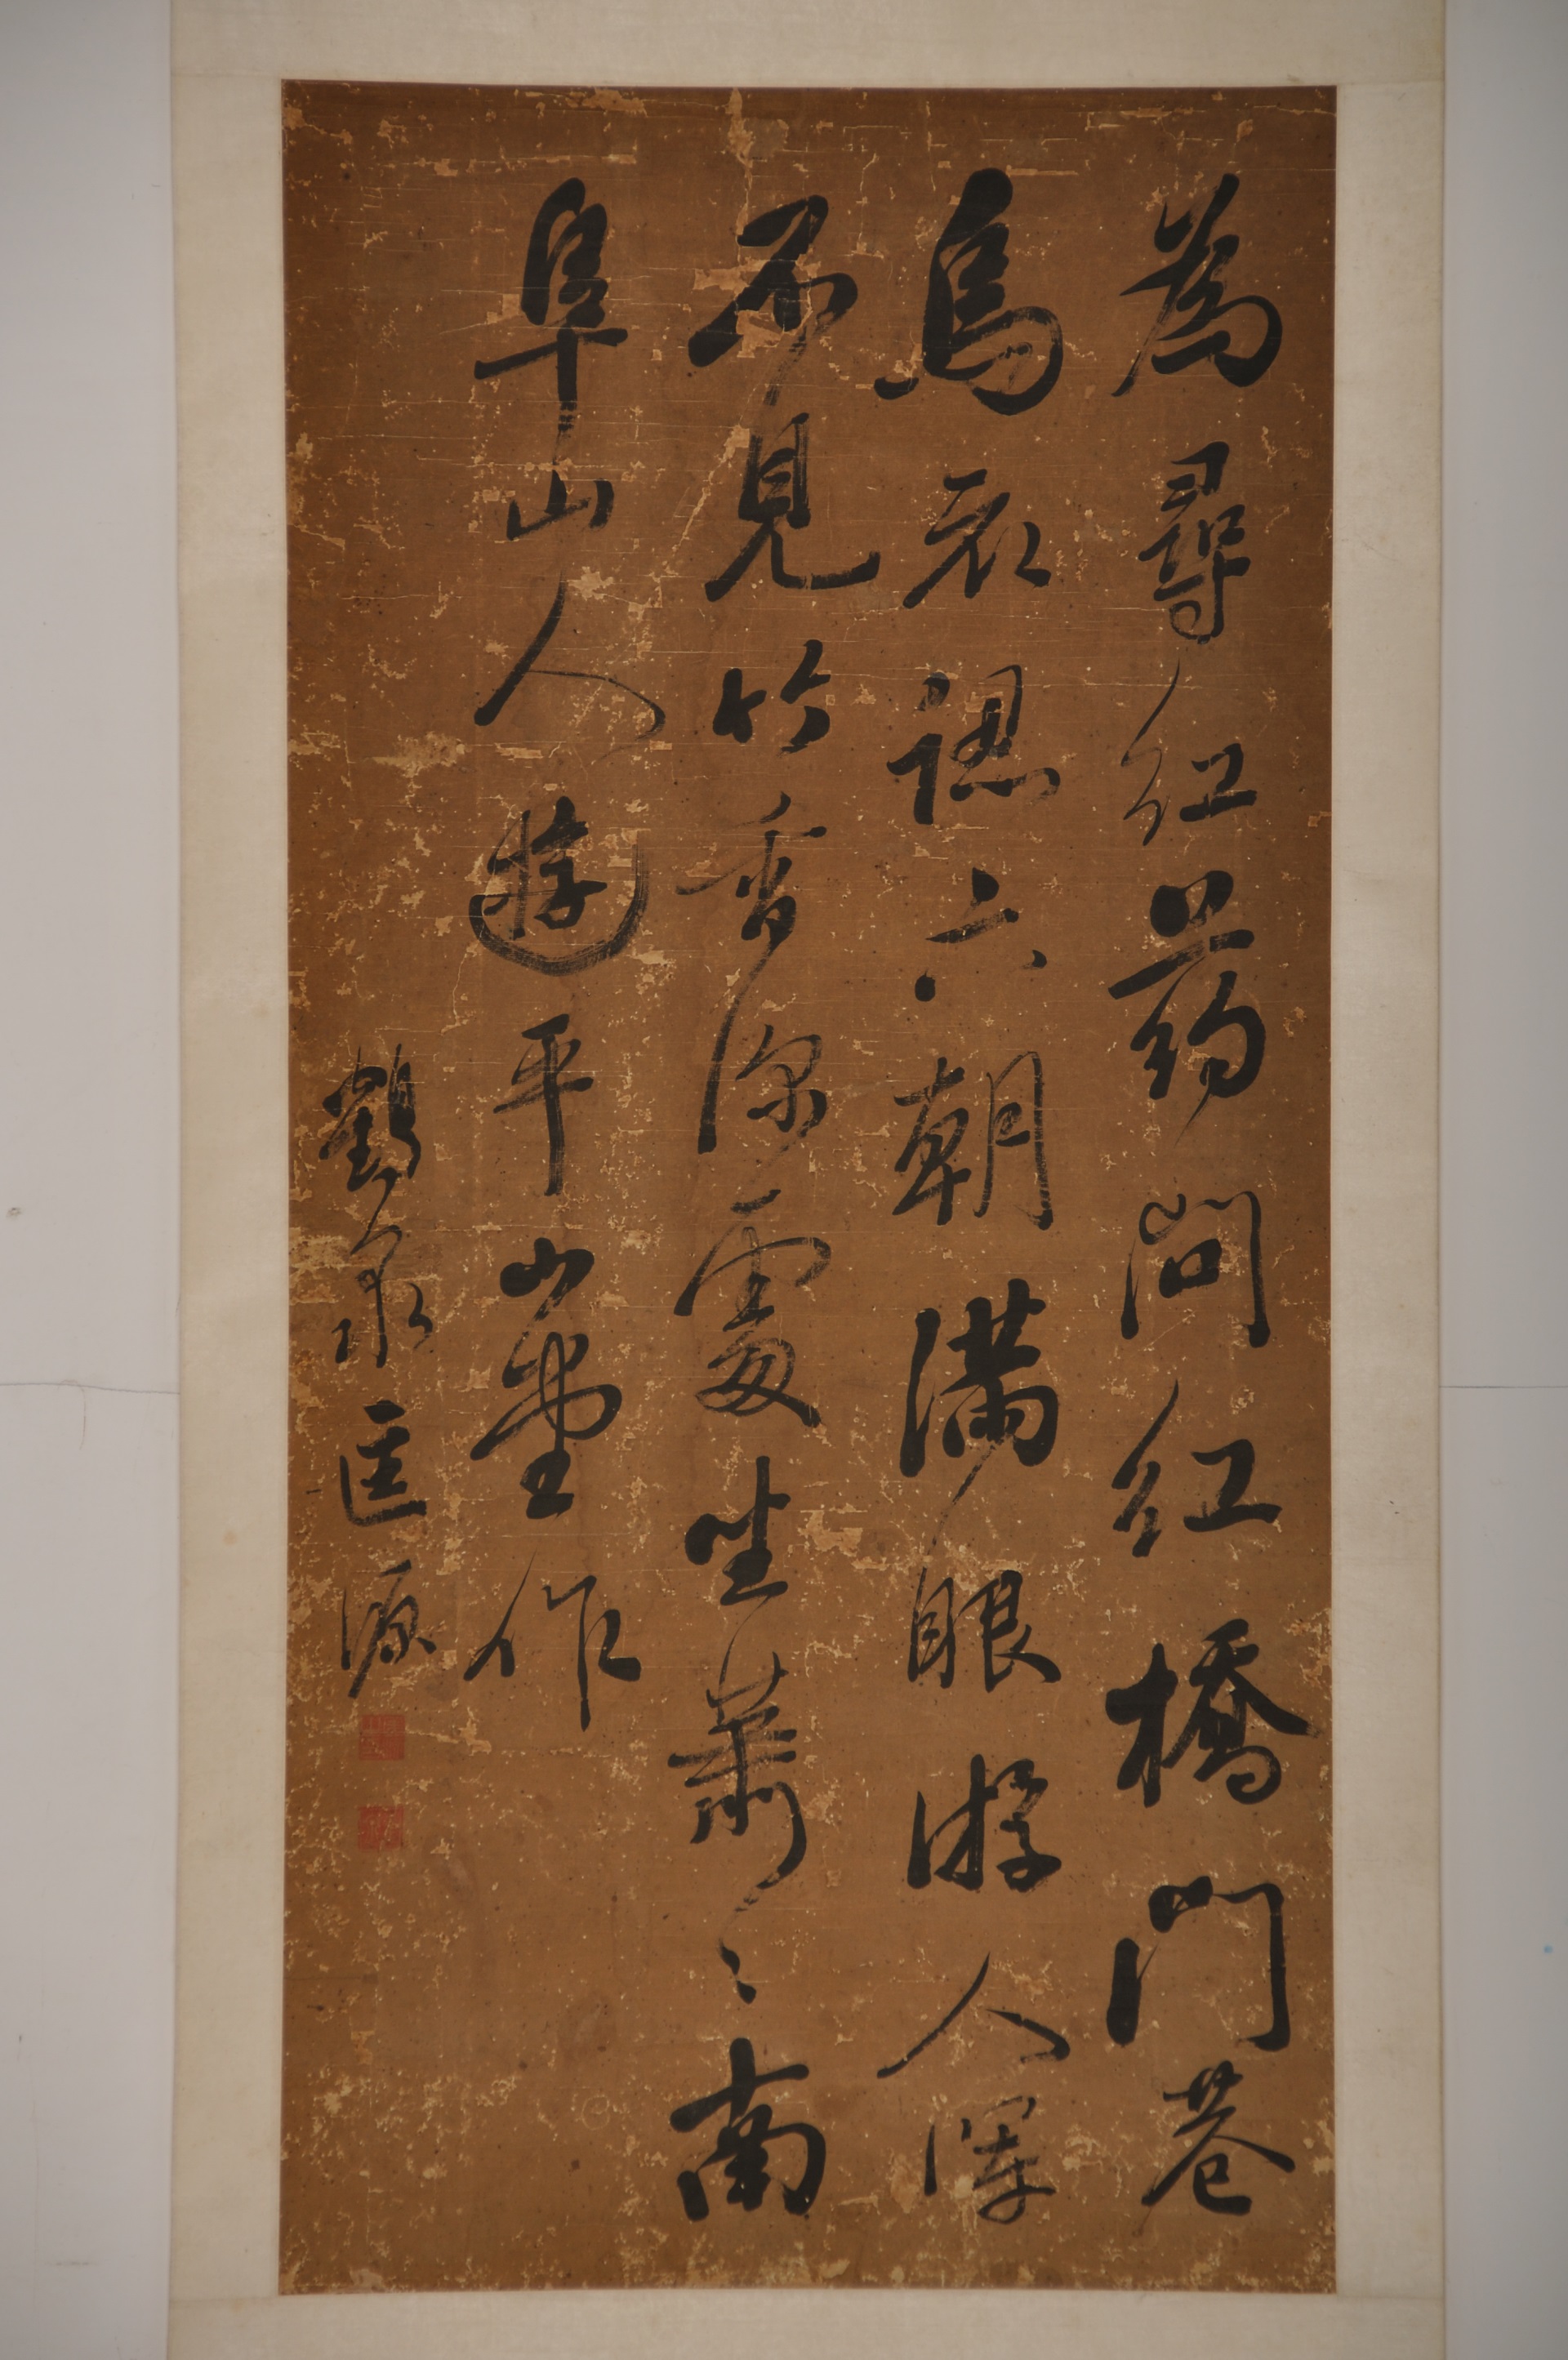 為尋紅藥問紅橋門巷
烏衣認六朝滿眼游人渾
不見竹香深處坐蕭〻南
阜山人遊平山堂作
鶴泉匡源